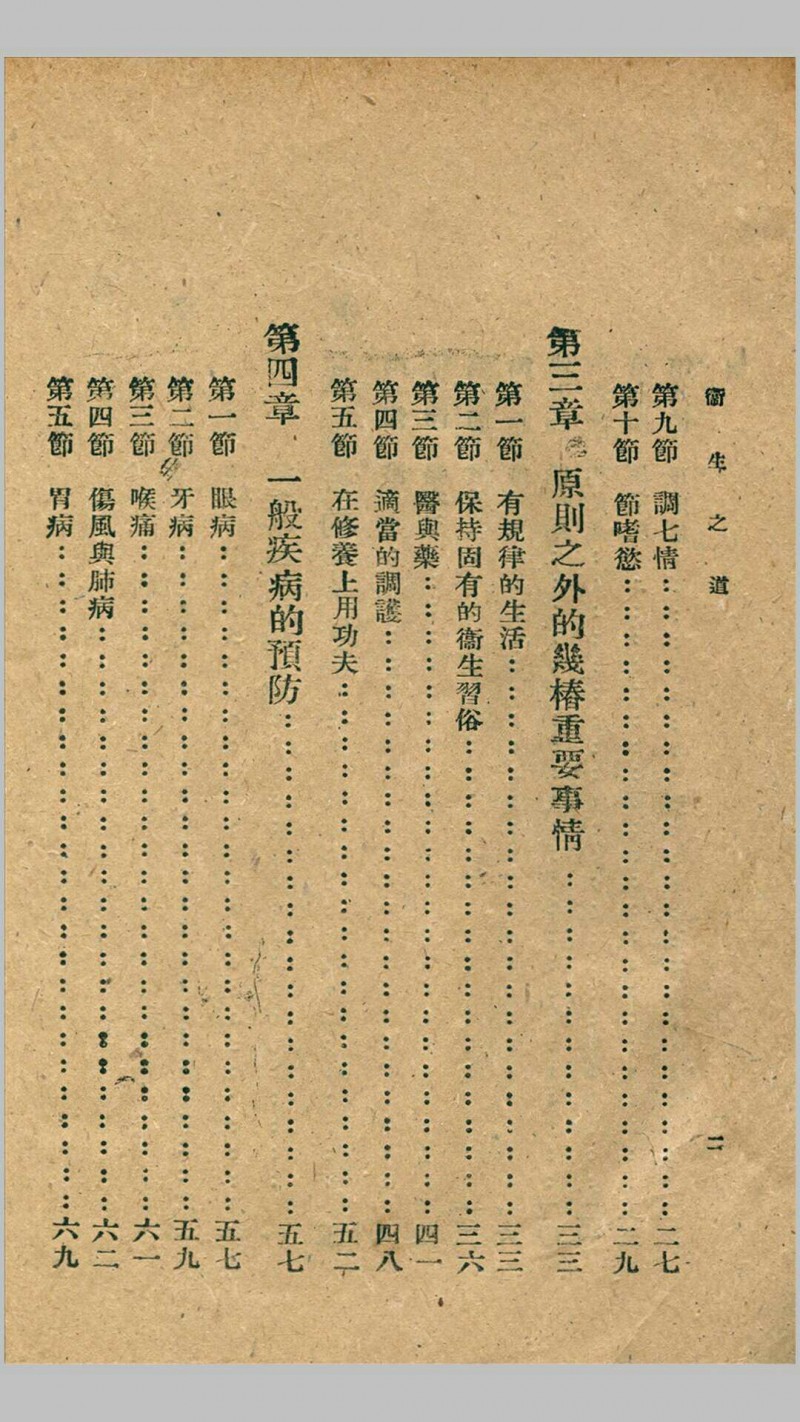 衞生之道 二
第九節 調七情：：：：：：：：：：：：：：：：：：：：：：：：二七
第十節 節嗜慾：：：：：：：：：：：：：：：：：：：：：：：：二九
第三章 原則之外的幾樁重要事情：：：：：：：：：：：：：三三
第一節 有規律的生活：：：：：：：：：：：：：：：：：：：：：三三
第二節 保持固有的衞生習俗：：：：：：：：：：：：：：：：：：三六
第三節 醫與藥：：：：：：：：：：：：：：：：：：：：：：：：四一
第四節 適當的調護：：：：：：：：：：：：：：：：：：：：：：四八
第五節 在修養上用功夫：：：：：：：：：：：：：：：：：：：：五二
第四章 一般疾病的預防：：：：：：：：：：：：：：：：：：：五七
第一節 眼病：：：：：：：：：：：：：：：：：：：：：：：：：五七
第二節 牙病：：：：：：：：：：：：：：：：：：：：：：：：：五九
第三節 喉痛：：：：：：：：：：：：：：：：：：：：：：：：：六一
第四節 傷風與肺病：：：：：：：：：：：：：：：：：：：：：：六二
第五節 胃病：：：：：：：：：：：：：：：：：：：：：：：：：六九